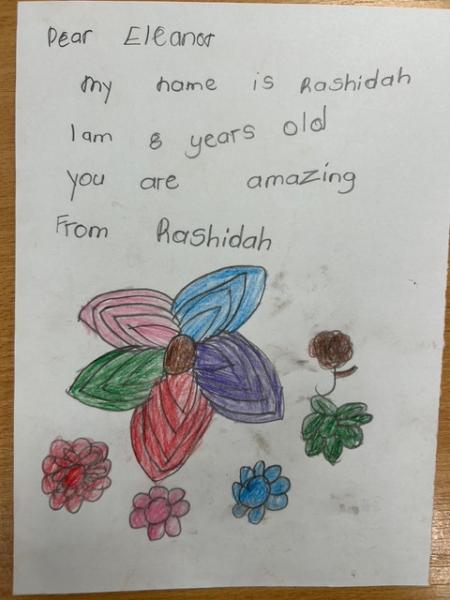 Dear Eleanor
my name is Rashidah
I am 8 years old
you are amazing
From Rashidah